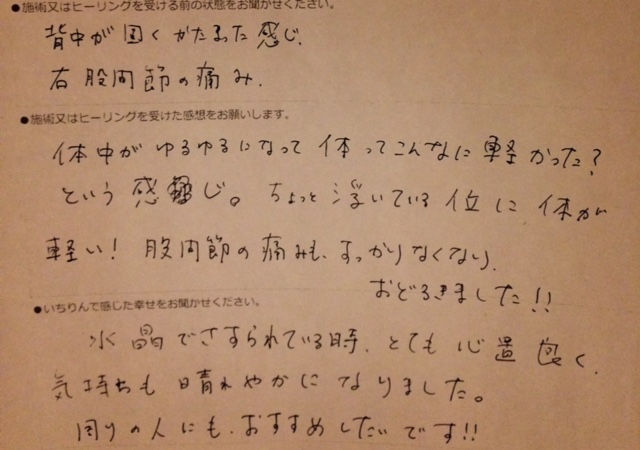 ●施術又はヒーリングを受ける前の状態をお聞かせください。
背中が固くかたまった感じ。
右股関節の痛み.
●施術又はヒーリングを受けた感想をお願いします。
体中がゆるゆるになって体ってこんなに軽かった？
という感じ。ちょっと浮いている位に体が
軽い！股関節の痛みも、すっかりなくなり、
おどろきました!!
●いちりんで感じた幸せをお聞かせください。
水晶でさすられている時、とても心置良く、
気持ちも晴れやかになりました。
周りの人にも、おすすめしたいです!!